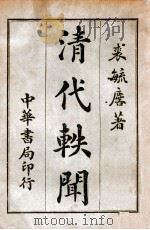 裘毓麐著
清代軼聞
中華書局印行
www.mtoou.info